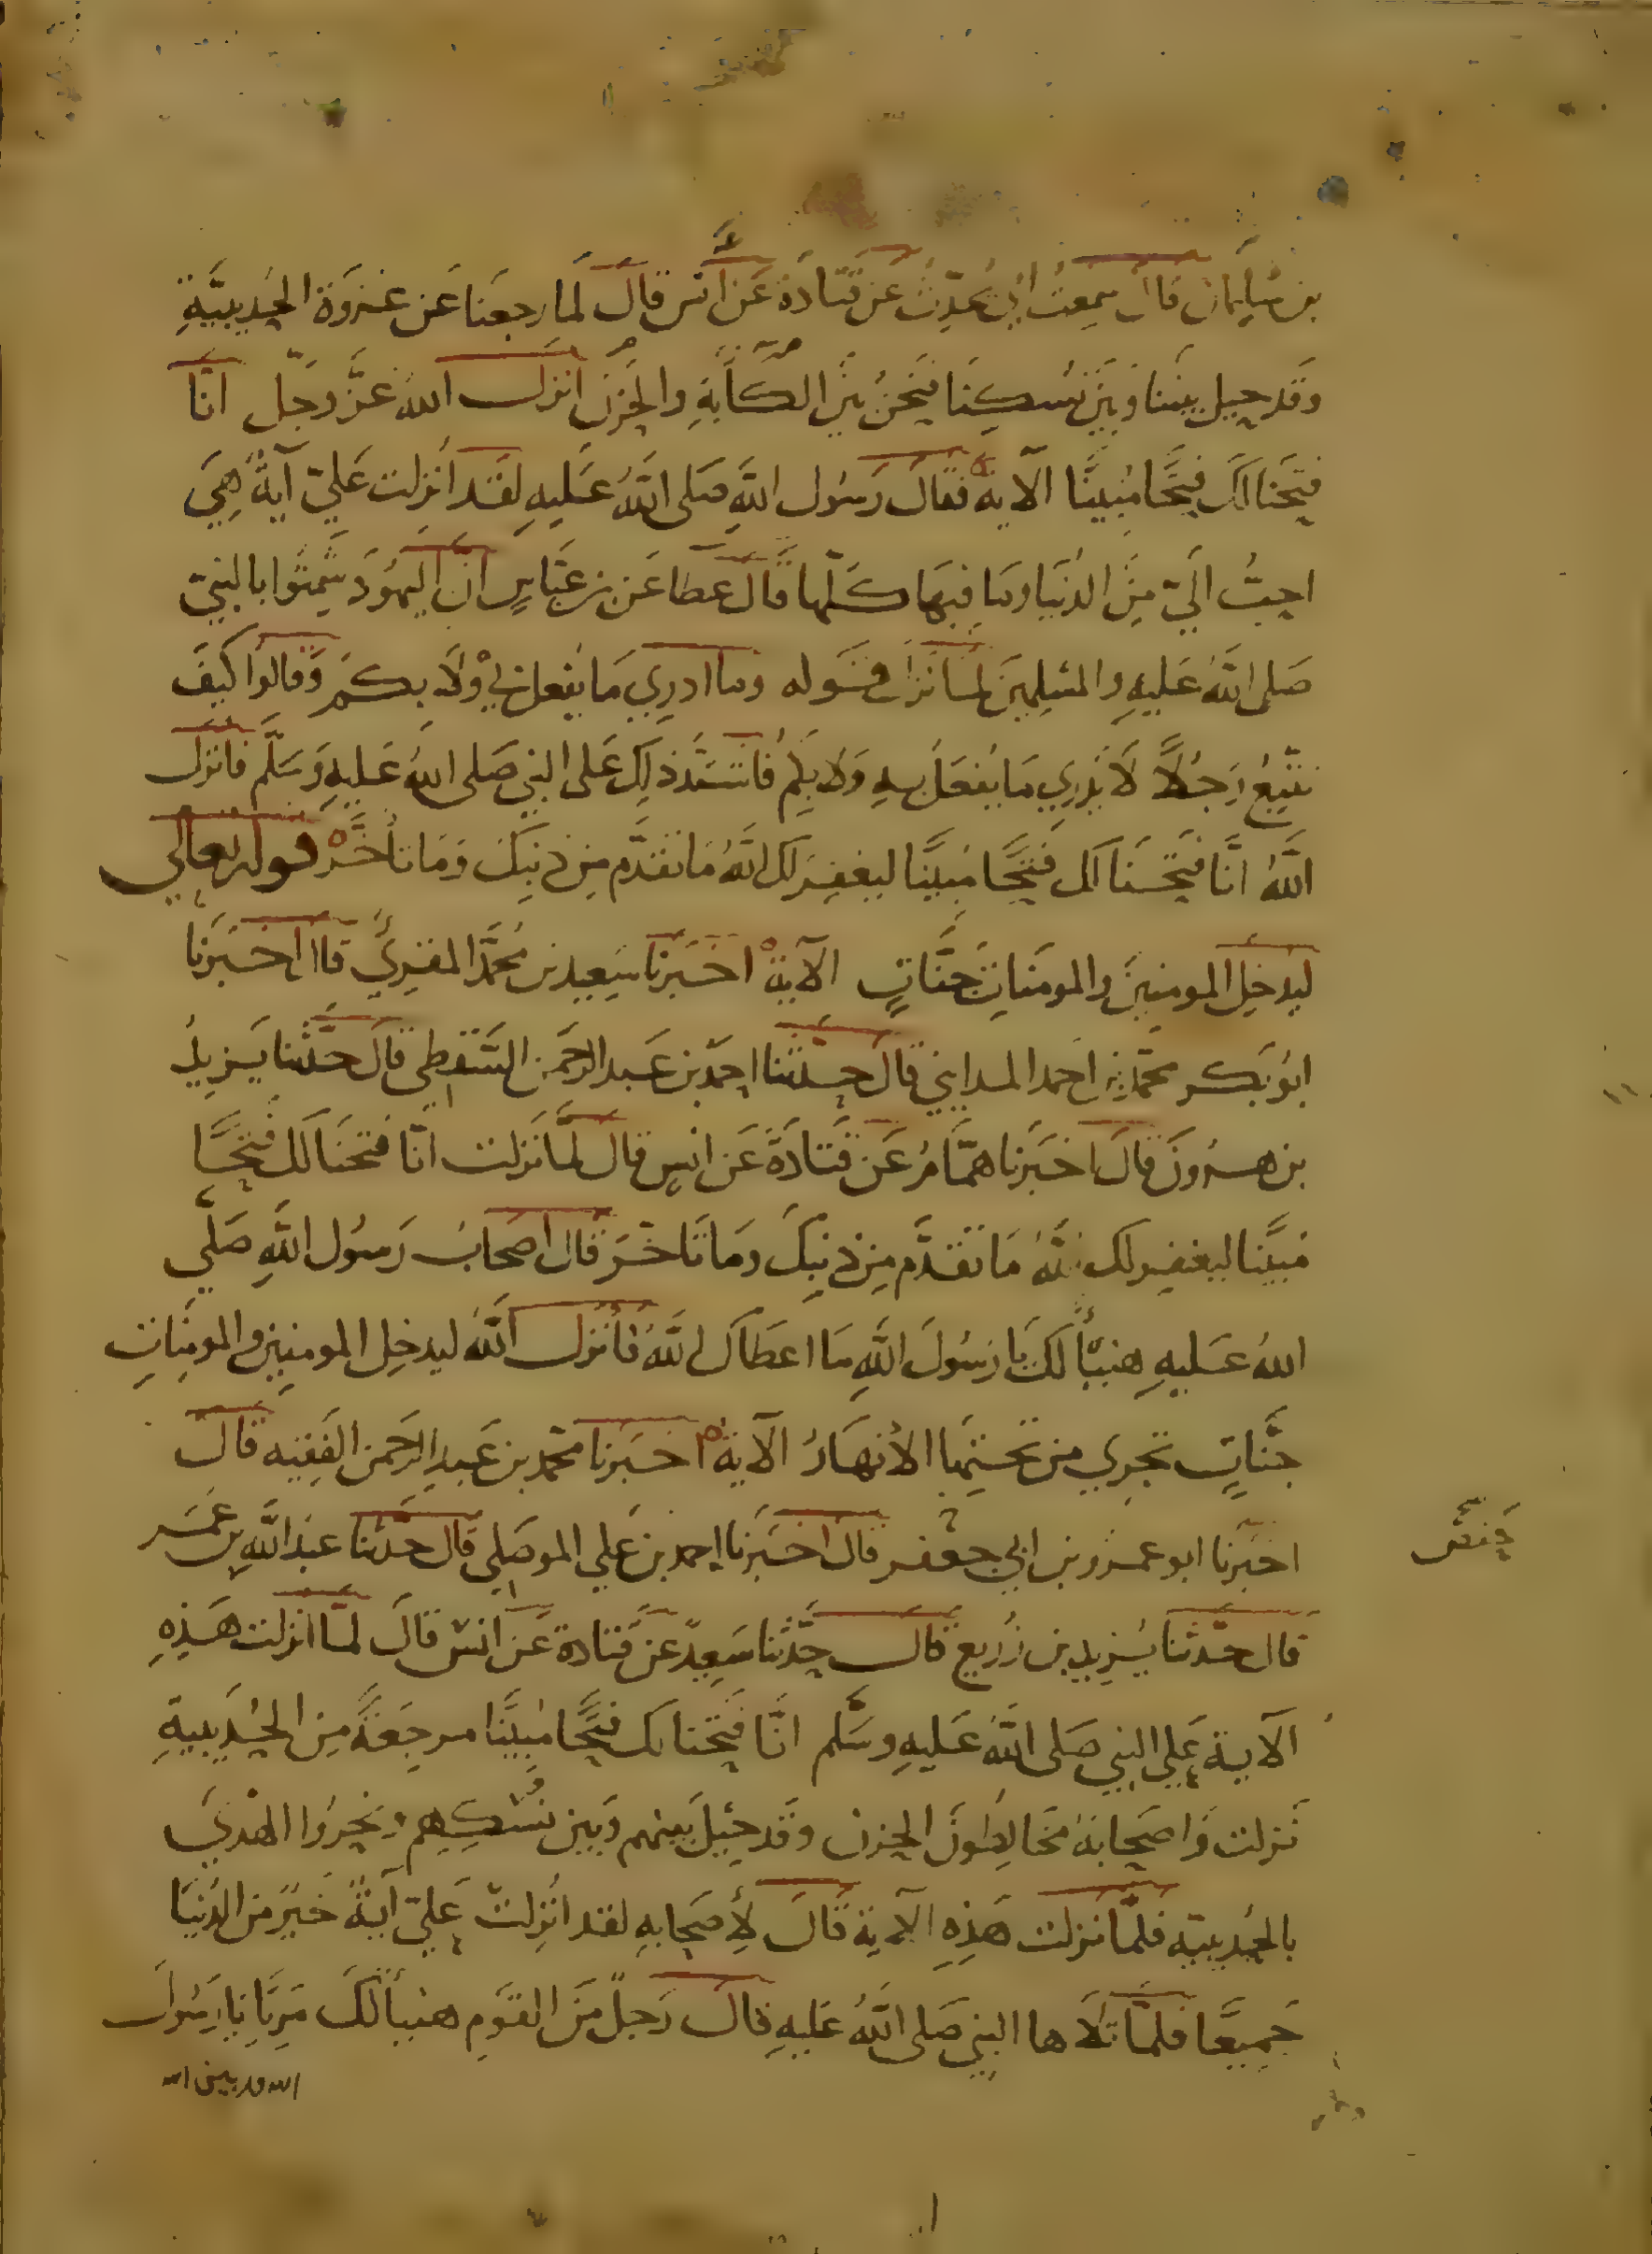 بن سليمان قال سمعت ابي يحدّث عن قتادة عن انس قال لما رجعنا عن غزوة الحديبية
وقد حيل بيننا وبين نسكنا فنحن بين الكآبة والحزن انزل الله عزّ وجلّ انّا
فتحنا لك فتحًا مبينًا الآية فقال رسول الله صلى الله عليه لقد أنزلت عليّ آيةٌ هي
احبُّ اليّ من الدنيا وما فيها كلّها قال عطا عن بن عبّاسٍ انّ اليهود شمتوا بالنبيّ
صلى الله عليه والمسلمين لما نزل قوله وما ادري ما يفعل بي ولا بكم وقالوا كيف
نتبع رجلًا لا يدري ما يفعل به ولا بكم فاشتد ذلك على النبي صلى الله عليه وسلّم فانزل
الله انّا فتحنا لك فتحًا مبينًا ليغفر لك الله ما تقدّم من ذنبك وما تأخّر قوله تعالى
ليدخل المومنين والمومنات جنّاتٍ الآية اخبرنا سعيد بن محمّد المقري قال اخبرنا
ابو بكر محمد بن احمد المدايني قال حدّثنا احمد بن عبد الرحمن السقطي قال حدّثنا يزيد
بن هرون قال اخبرنا همّام عن قتادة عن انسٍ قال لمّا نزلت انّا فتحنا لك فتحًا
مبينًا ليغفر لك الله ما تقدّم من ذنبك وما تاخّر قال اصحاب رسول الله صلّى
الله عليه هنيئًا لك يا رسول الله ما اعطاك الله فأنزل الله ليدخل المومنين والمومنات
جنّاتٍ تجري من تحتها الأنهار الآية اخبرنا محمّد بن عبد الرحمن الفقيه قال
اخبرنا ابو عمرو بن ابي جعفر قال اخبرنا احمد بن علي الموصلي قال حدّثنا عبد الله بن عمر
قال حدّثنا يزيد بن زريع قال حدّثنا سعيد عن قتادة عن انس قال لما انزلت هذه
الآية على النبي صلى الله عليه وسلّم انّا فتحنا لك فتحًا مبينًا مرجعهٔ من الحديبية
نزلت واصحابهٔ مخالطون الحزن وقد حيل بينهم وبين نسكهم ونحروا الهدي
بالحديبية فلمّا نزلت هذه الآية قال لأصحابه لقد انزلت عليّ آيةٌ خيرٌ من الدنيا
جميعًا فلمّا تلاها النبي صلى الله عليه قال رجلٌ من القوم هنيئًا لك مريًا يا رسول
الله قد بين الله